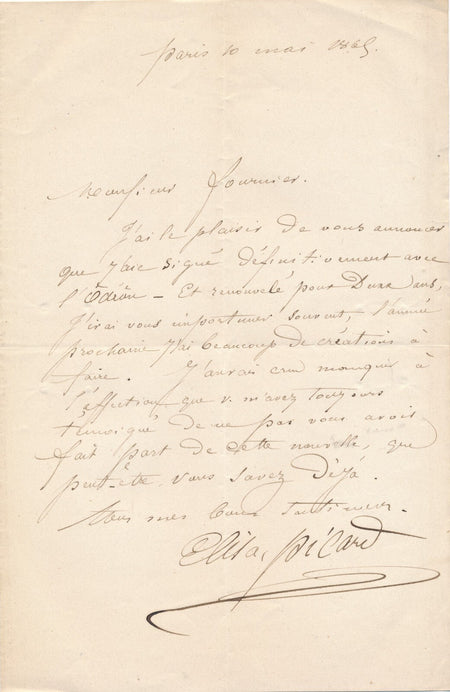 Paris 10 mai 1865.
Monsieur Fournier.
J'ai le plaisir de vous annoncer
que j'aie signé définitivement avec
l'Odéon - Et renouvelé pour Deux ans,
J'irai vous importuner souvent, l'année
prochaine j'ai beaucoup de créations à
faire. J'aurais cru manquer à
l'affection que v. m'avez toujours
témoigné de ne pas vous avoir
fait part de cette nouvelle, que
peut-être vous savez Déjà.
Tous mes bons
Elisa Picard